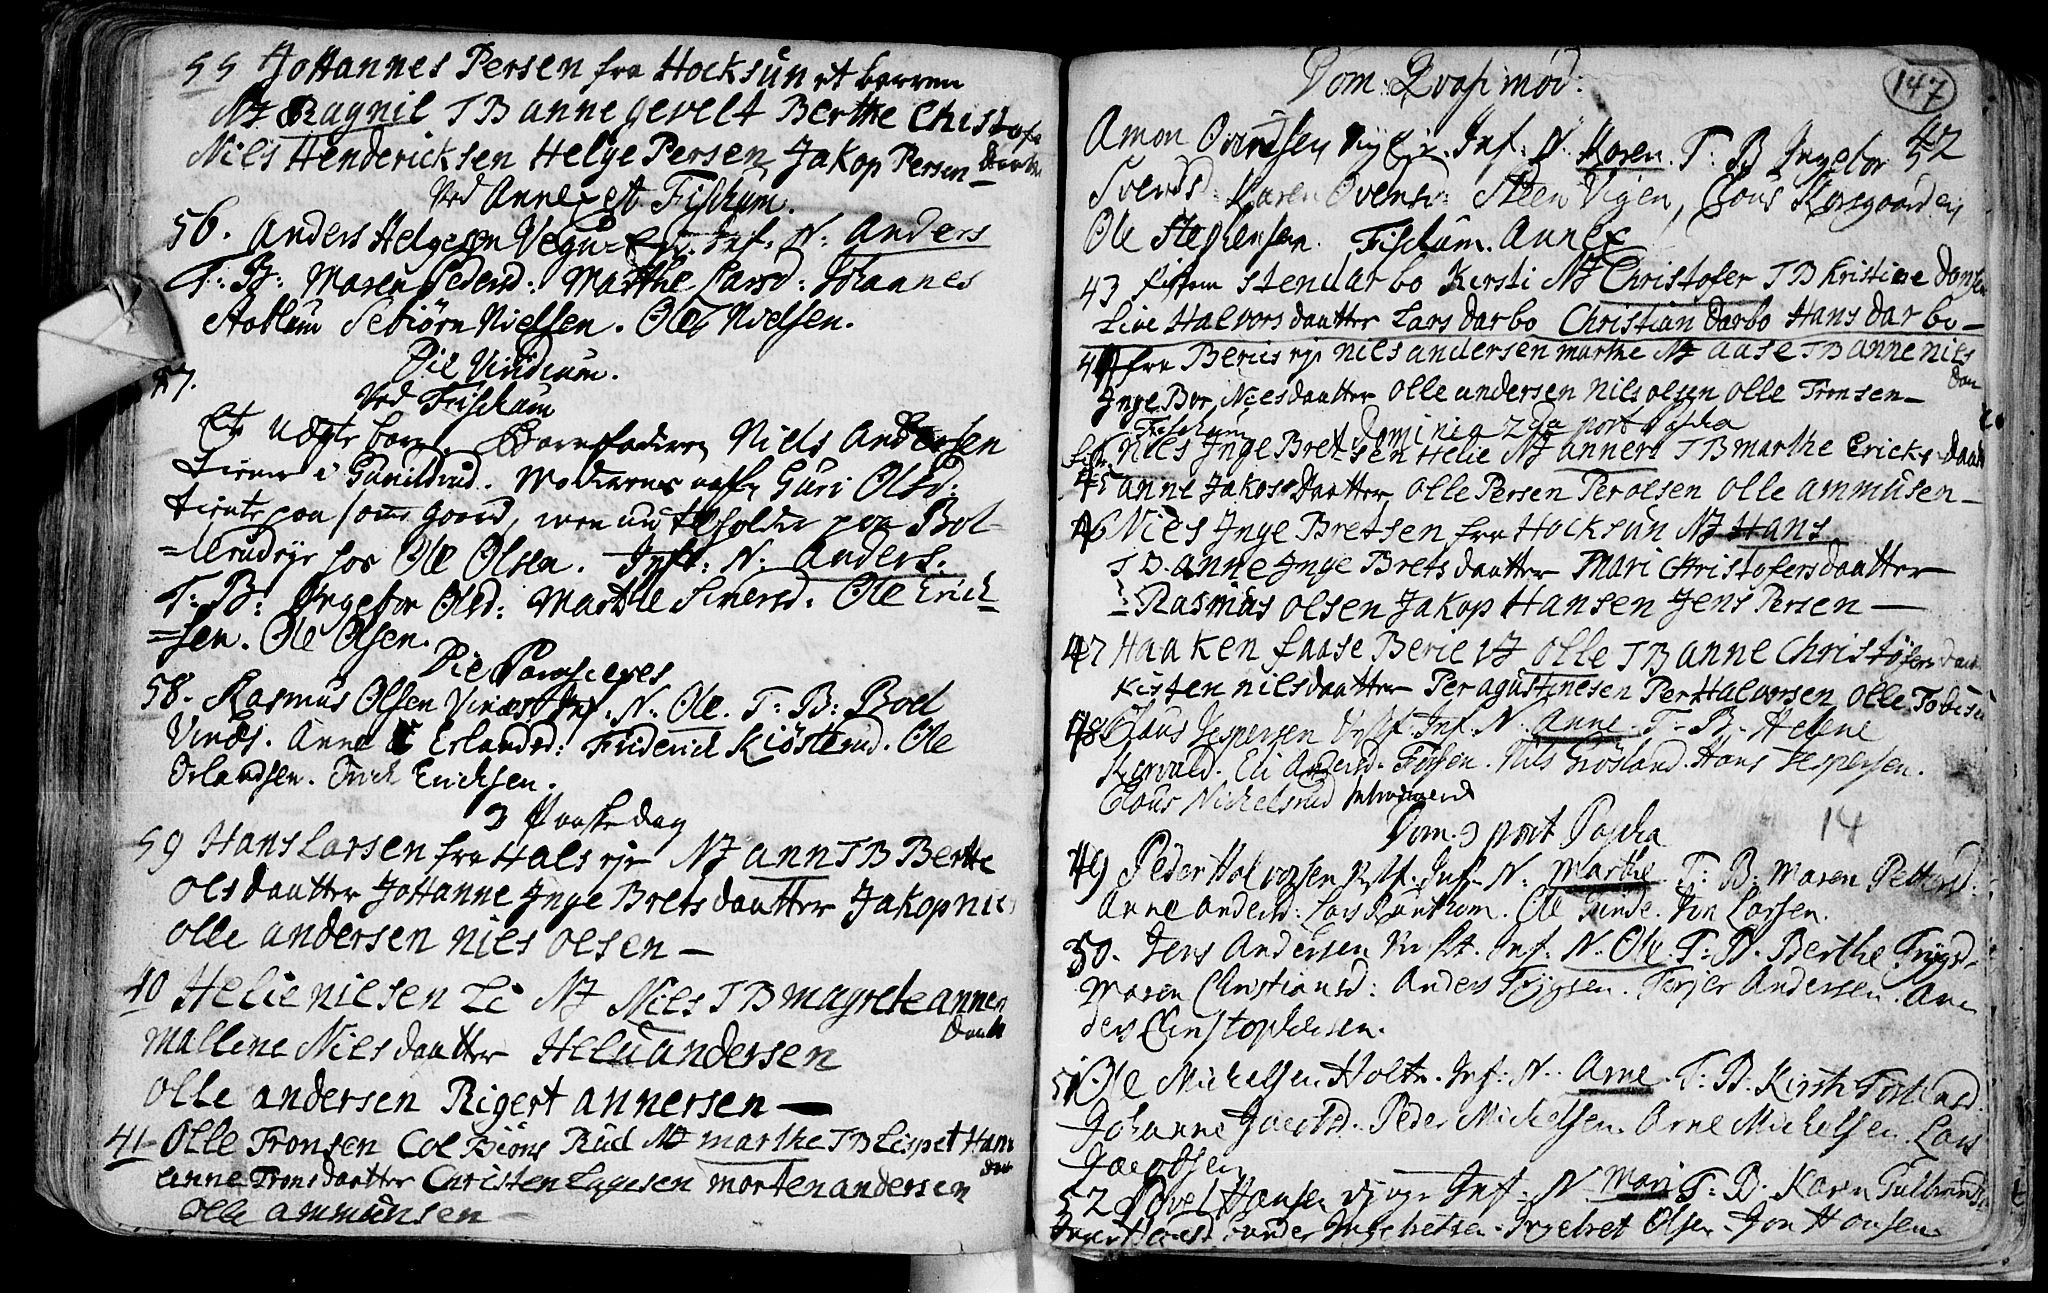 55 Johannes Persen fra Hocksün et barren
NJ Ragnil T B anne gevelt Berthe Christofe
Niels Hendericksen Helge Persen Jakop Persen Daatter
Ved Annexet Fischum.
56. Anders Helgesen Inf. N. Anders
T: B: Maren Pedersd. Marthe Larsd: Johannes
Stoklum Sebiörn Nielsen. Ole Nielsen.
Die Viridium.
57. Ved Fischum
Et uægte barn. Barnefaderen Niels Andersen
tiener i Gunildrud. Moderens nafn Guri Olsd:
tiente paa samme gaard, men nu tilholder paa Bol-
=lerudeye hos Ole Olsen. Inft: N: Anders.
T: B: Ingebor Olsd: Marthe Siversd. Ole Erich
=sen. Ole Olsen.
Die Parasceves
58. Rasmus Olsen Vinæs Inf. N. Ole. T: B: Boel
Vinæs. Anne Erlandsd: Friderich Kiösterud. Ole
Erlandsen. Erich Erichsen.
3 Paaske dag
59 Hans Larsen fra Hals eje NJ ann T B Berthe
ols daatter Johanne Inge Brets daatter Jakop nils
olle andersen niels olsen –
40 Helie nielsen Li NJ Niels T B magrete annen
Daatt
mallene Niels daatter Helie andersen
olle andersen Rigert annersen –
41 Olle Tronsen Col Biöns Rud NJ marthe T B Lispet Hans
Daa
anne Trons daatter Christen Eggesen morten andersen
Olle ammunsen
147
Dom: Qvasimod:
Amon Ovensen Inf: N. Karen. T: B Ingebor 42
Svendsd: Karen Ovensd: Steen Vigen, Claus Korsgaarden
Ole Stephensen. Fischum. Annex
43 stendarbo Kirsti NJ Christofer T B Kristine Dons
Live Halvors daatter Lars Darbo Christian Darbo Hans darbo –
44 fra Berie eje niels andersen marthe NJ aase T B anne niels
Daa
Inge Bor Niels daatter olle andersen nils olsen olle Tronsen –
Fischum Dominica 2da post Pascha
45 Niels Inge Bretsen Helie NJ annern T B marthe Ericks daatt
anne Jakops Daatter olle Persen Per olsen olle ammunsen –
46 Niels Inge Bretsen fra Hocksün NJ Hans
T B anne Inge Brets daatter Mari Christofers daatter
Rasmus olsen Jakop Hansen Jens Persen –
47 Haaken faase Berie NJ olle T B anne Christöfers daat
Kisten niels daatter Per agustinesen Per Halvorsen olle
48 Claus Jespersen Inf. N. Anne. T: B. Helene
Eli Andersd. Fossen. Nils Grösland. Hans Jespersen.
Claus Nichelsrud introducerd
Dom. 3 post Pascha 14
49 Peder Halvorsen Inf. N: Marthe. T: B: Maren Pettersd:
Anne Andersd: Lars Ole Jon Larsen.
50. Jens Andersen Inf: N. Ole. T: B. Berthe Trygsd.
Maren Christiansd: Anders Trygsen. Terjer Andersen. An
ders Christophersen.
51 Ole Michelsen Holte. Inf: N. Arne. T: B. Kirsti
Johanne Jacobsd. Peder Michelsen. Arne Michelsen. Lars
Jacobsen
52 Povel Hansen Inf: N Mari T: B. Karen Gulbrands
Ingebretsen. Ingebret Olsen. Jon Hansen.